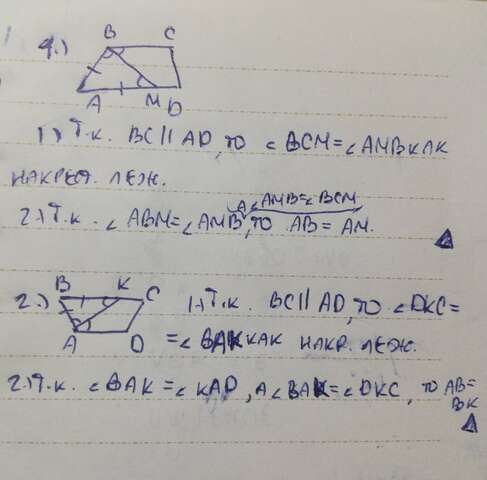 4.)
B C
A M D
1) Т.к. BC || AD, то ∠BCM = ∠AMB как
накрест. леж.
а ∠AMB = ∠BCM
2) Т.к. ∠ABM = ∠AMB, то AB = AM.
2.) B K C 1.) Т.к. BC || AD, то ∠DKC =
A D = ∠BAK как накр. леж.
2.) Т.к. ∠BAK = ∠KAD, а ∠BAK = ∠DKC, то AB =
BK